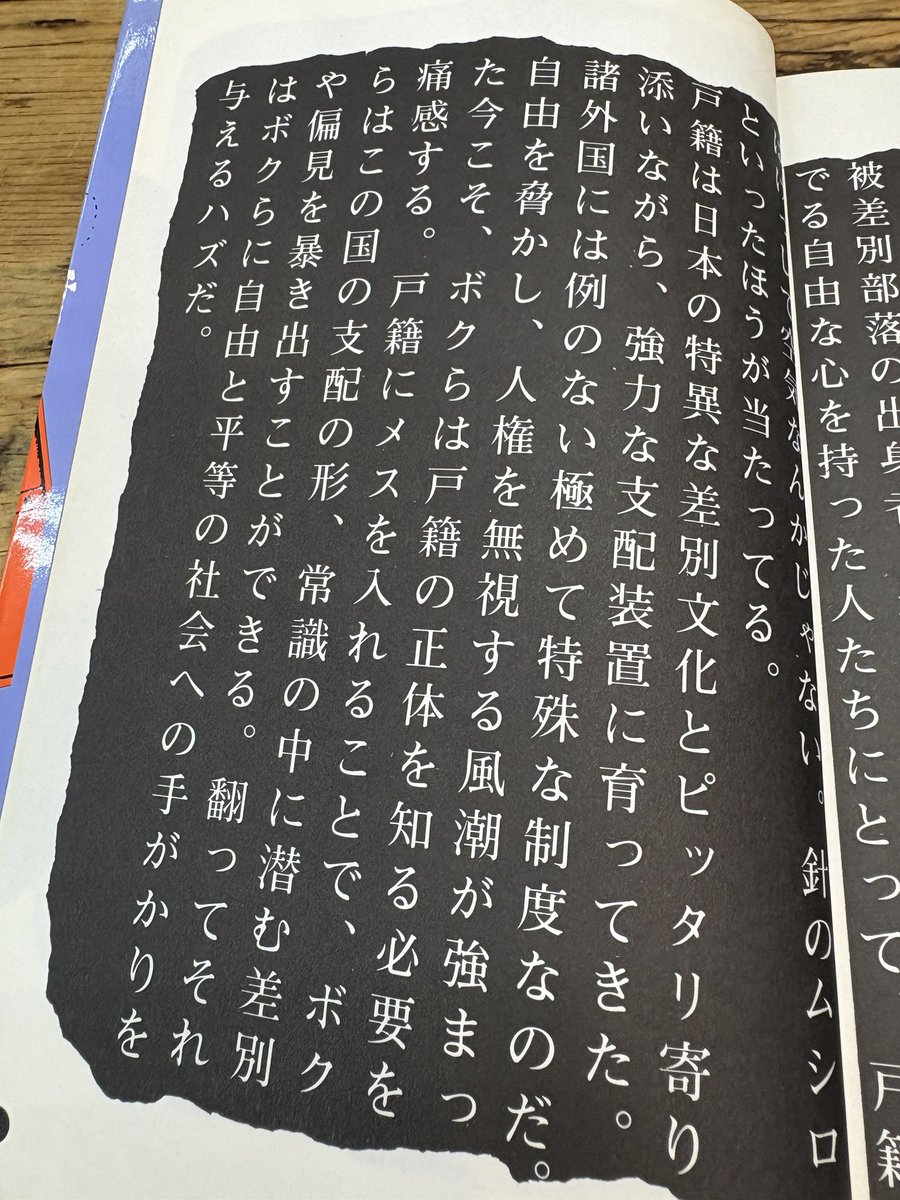 被差別部落の出身者
でる自由な心を持った人たちにとって 戸籍
して空気なんかじゃない。針のムシロ
といったほうが当たってる。
戸籍は日本の特異な差別文化とピッタリ寄り
添いながら、強力な支配装置に育ってきた。
諸外国には例のない極めて特殊な制度なのだ。
自由を脅かし、人権を無視する風潮が強まっ
た今こそ、ボクらは戸籍の正体を知る必要を
痛感する。戸籍にメスを入れることで、ボク
らはこの国の支配の形、常識の中に潜む差別
や偏見を暴き出すことができる。翻ってそれ
はボクらに自由と平等の社会への手がかりを
与えるハズだ。